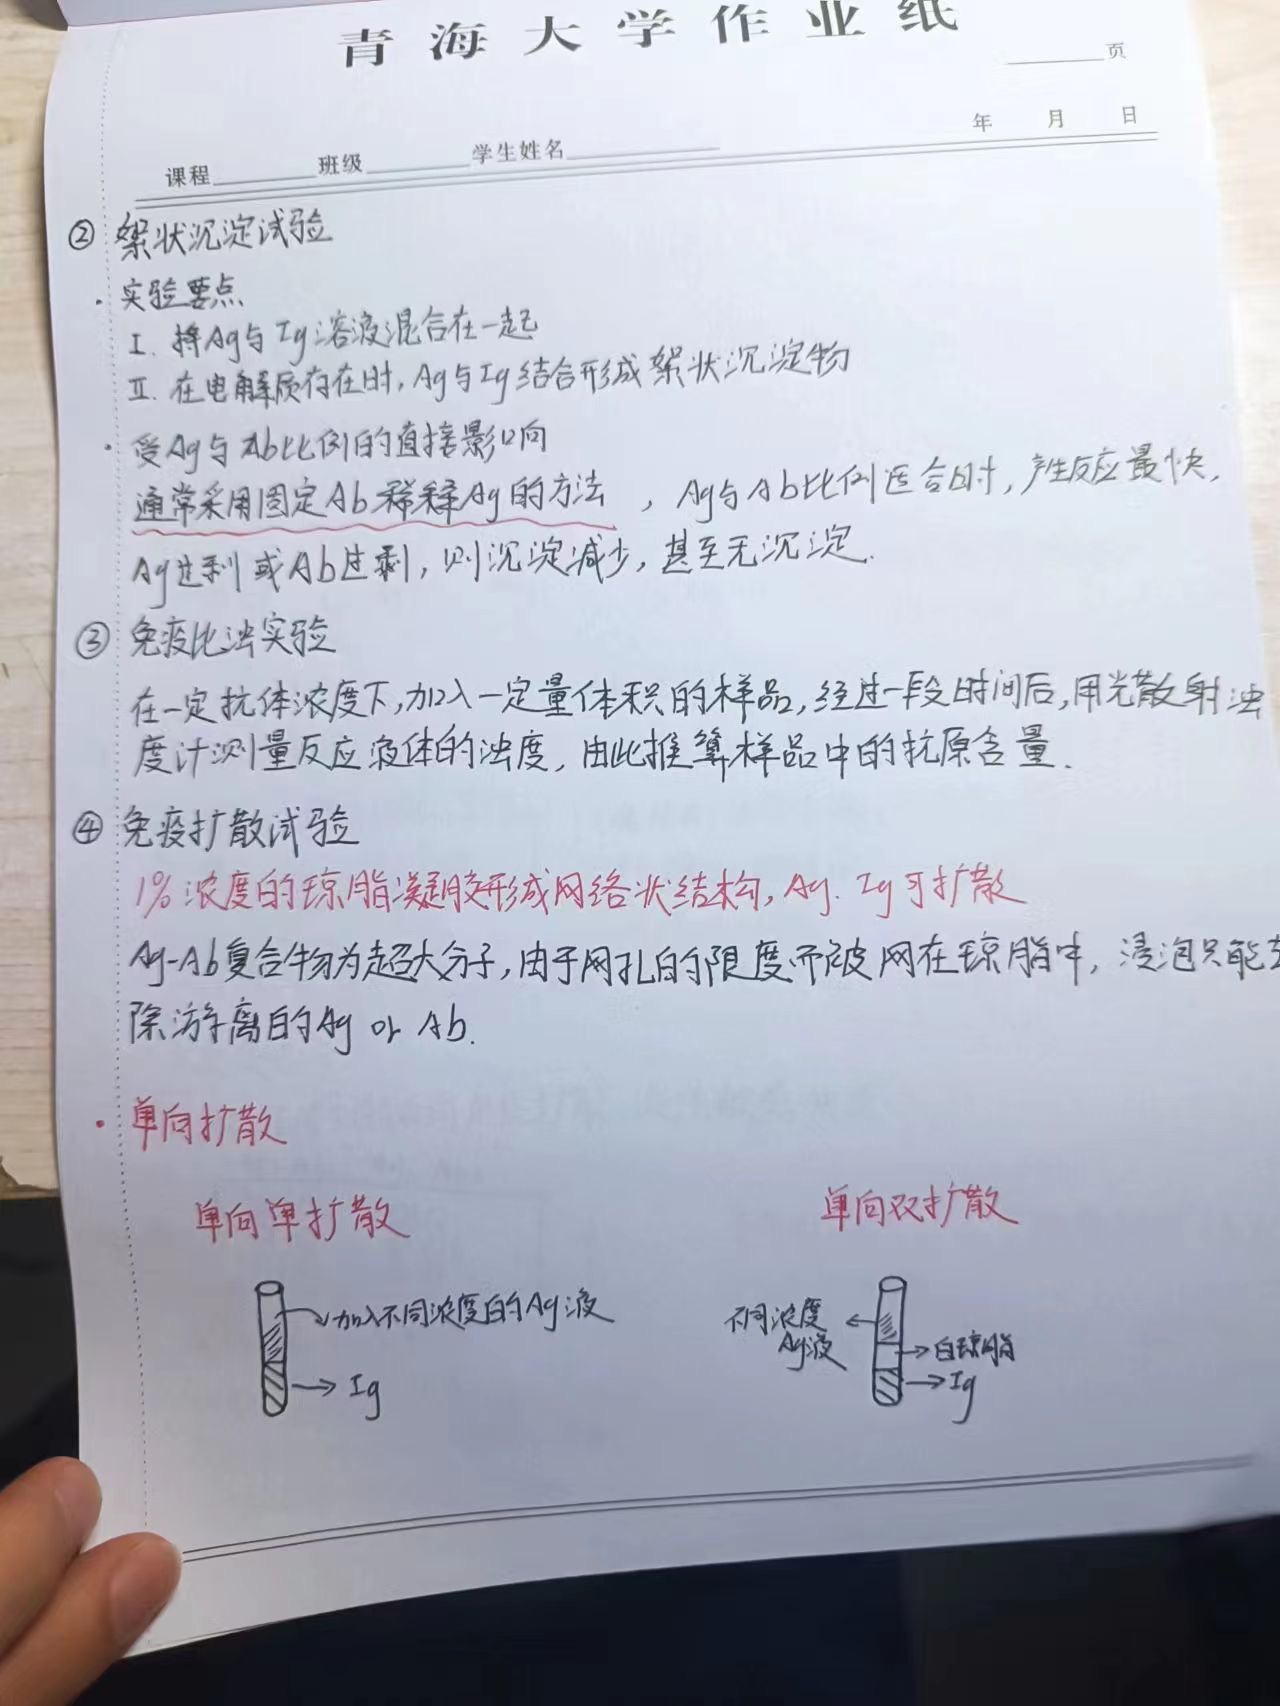 青海大学作业纸
页
年 月 日
课程 班级 学生姓名
② 絮状沉淀试验
· 实验要点
I. 将Ag与Ig溶液混合在一起
II. 在电解质存在时,Ag与Ig结合形成絮状沉淀物
· 受Ag与Ab比例的直接影响
通常采用固定Ab稀释Ag的方法,Ag与Ab比例适合时,产生反应最快,
Ag过剩或Ab过剩,则沉淀减少,甚至无沉淀.
③ 免疫比浊实验
在一定抗体浓度下,加入一定量体积的样品,经过一段时间后,用光散射浊
度计测量反应液体的浊度,由此推算样品中的抗原含量.
④ 免疫扩散试验
1%浓度的琼脂凝胶形成网络状结构,Ag. Ig可扩散
Ag-Ab复合物为超大分子,由于网孔的限度而被网在琼脂中,浸泡只能去
除游离的Ag or Ab.
· 单向扩散
单向单扩散 单向双扩散
加入不同浓度的Ag液
Ig
不同浓度
Ag液
白琼脂
Ig